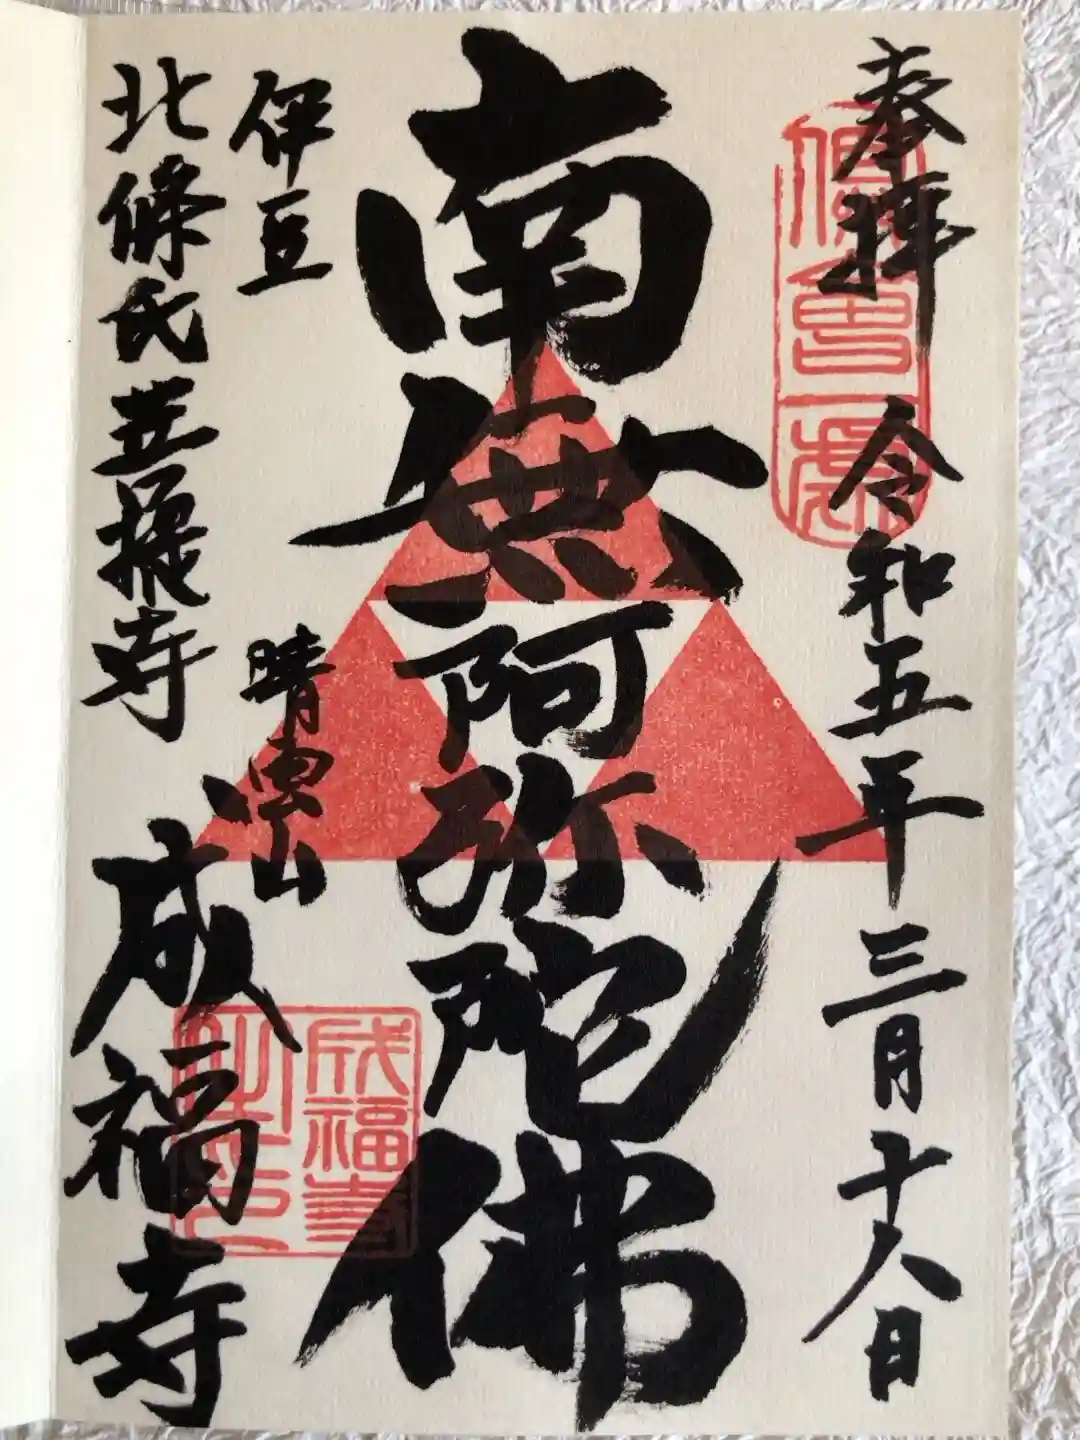 奉拝
令和五年三月十八日
南無阿弥陀佛
伊豆
晴雲山
北條氏菩提寺
成福寺
成福寺